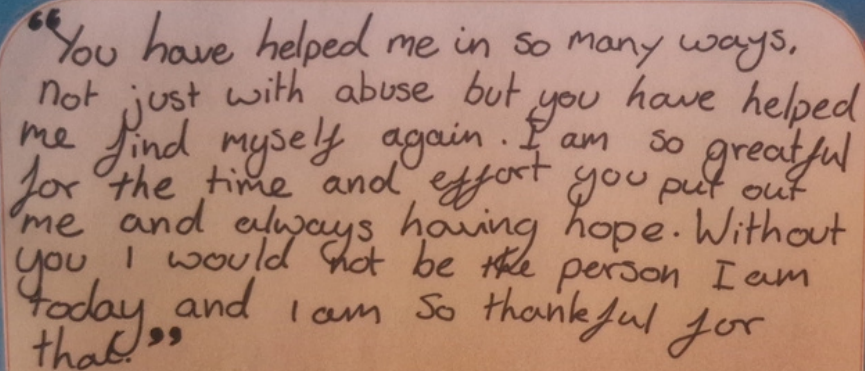 “You have helped me in so many ways.
not just with abuse but you have helped
me find myself again. I am so greatful
for the time and effort you put out
me and always having hope. Without
you I would not be the person I am
today and I am so thankful for
that.”